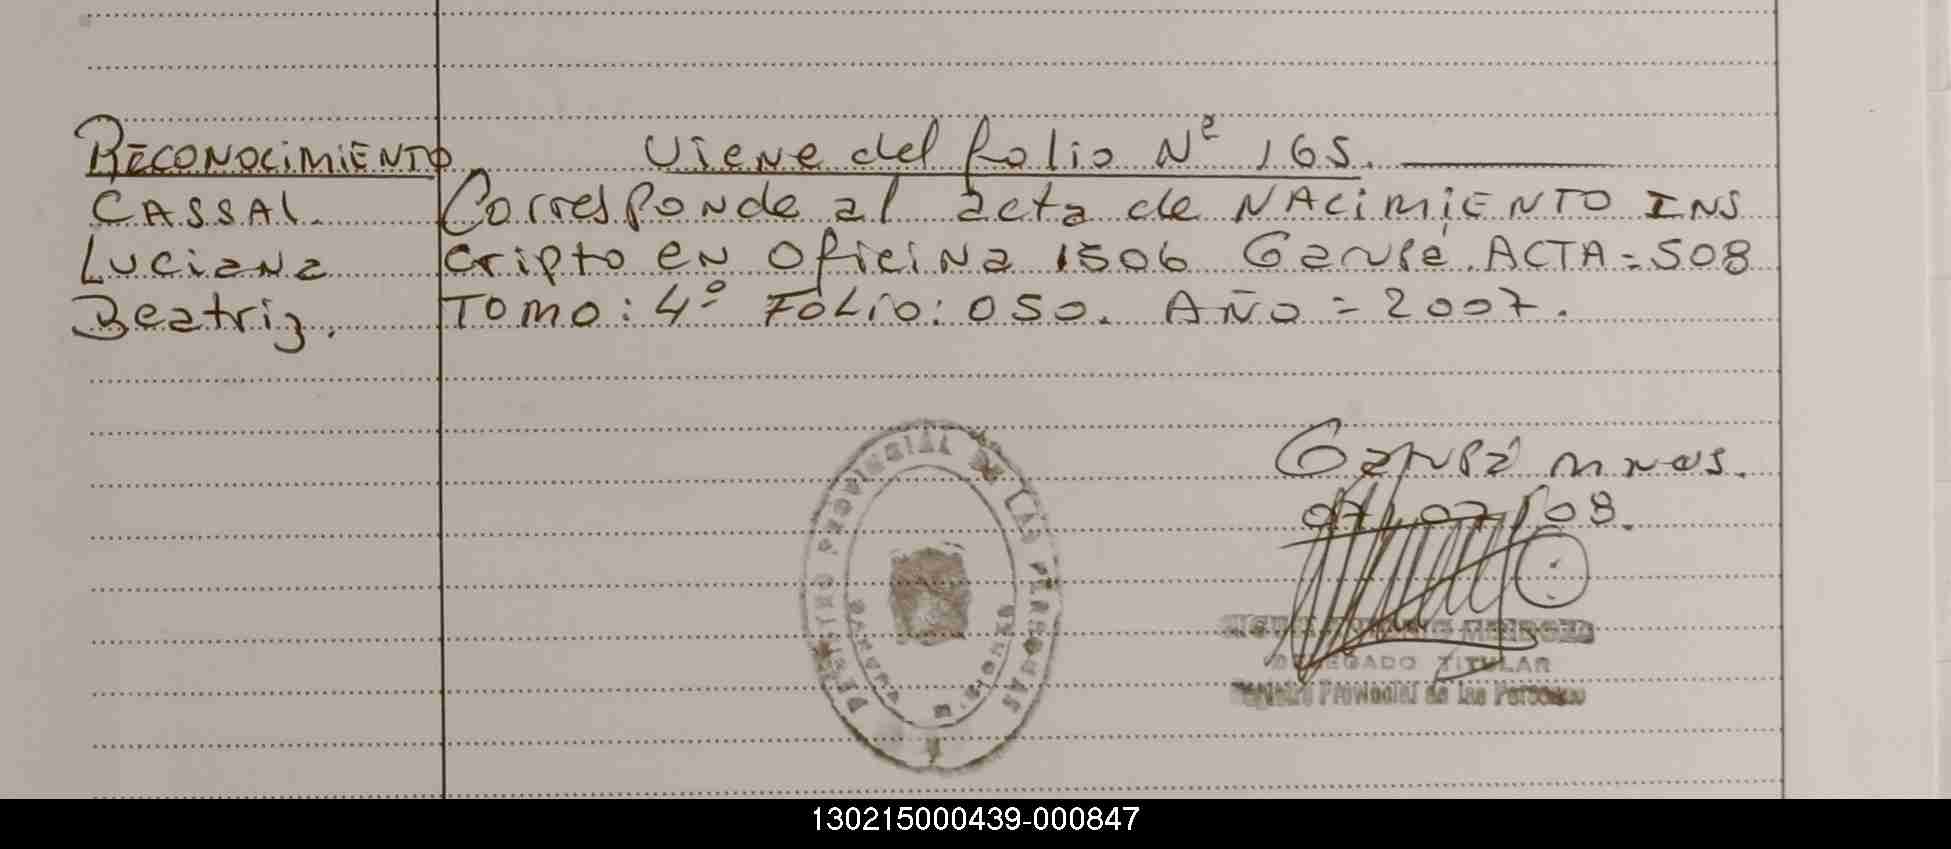 RECONOCIMIENTO
Viene del folio Nº 165.
CASSAL
Corresponde al acta de NACIMIENTO INS
Luciana
cripto en Oficina 1506 Garupá. ACTA = 508
Beatriz.
TOMO: 4º FOLIO: 050. AÑO = 2007.
Garupá mnes.
07/07/08.
REGISTRO PROVINCIAL DE LAS PERSONAS
DELEGADO TITULAR
Registro Provincial de las Personas
130215000439-000847